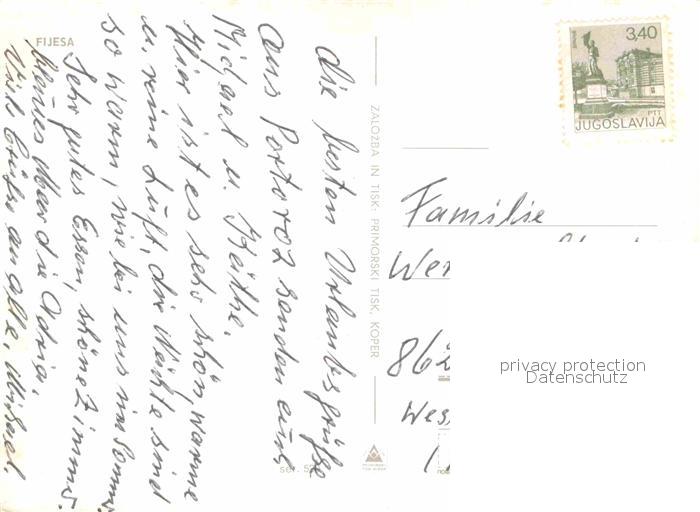 FIJESA
die besten Urlaubsgrüße
aus Portoroz senden eure
Michael u. Käthe.
Hier ist es sehr schön, warme
u. reine Luft, die Nächte sind
so warm, wie bei uns im Sommer.
Sehr gutes Essen, schöne Zimmer.
blaues Meer die Adria.
Viele Grüße an alle, Michael
ZALOŽBA IN TISK: PRIMORSKI TISK, KOPER
3,40
PTT
JUGOSLAVIJA
Familie
Wer
862
Wes
privacy protection
Datenschutz